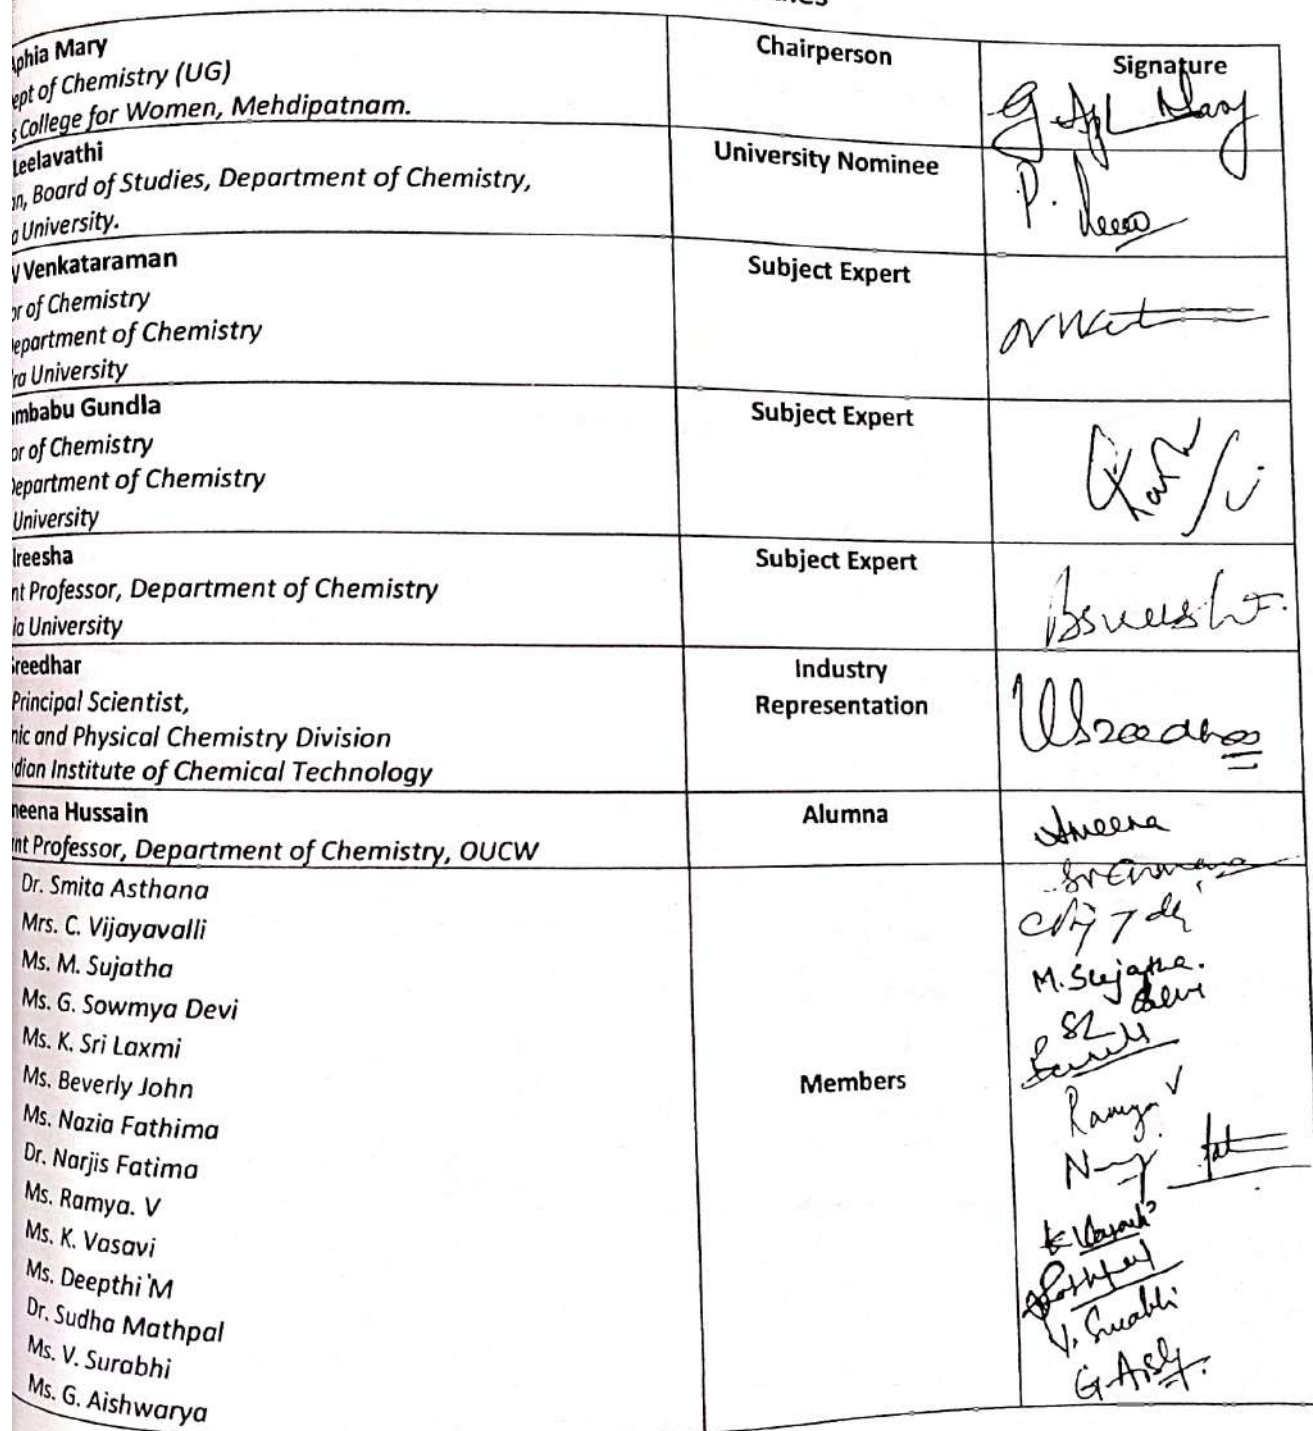 Aphia Mary
ept of Chemistry (UG)
s College for Women, Mehdipatnam.
Chairperson
Signature
Leelavathi
n, Board of Studies, Department of Chemistry,
a University.
University Nominee
P.
V Venkataraman
or of Chemistry
epartment of Chemistry
ra University
Subject Expert
mbabu Gundla
or of Chemistry
Department of Chemistry
University
Subject Expert
ireesha
nt Professor, Department of Chemistry
ia University
Subject Expert
Sreedhar
Principal Scientist,
nic and Physical Chemistry Division
dian Institute of Chemical Technology
Industry
Representation
meena Hussain
nt Professor, Department of Chemistry, OUCW
Alumna
Ameena
Dr. Smita Asthana
Mrs. C. Vijayavalli
Ms. M. Sujatha
Ms. G. Sowmya Devi
Ms. K. Sri Laxmi
Ms. Beverly John
Ms. Nazia Fathima
Dr. Narjis Fatima
Ms. Ramya. V
Ms. K. Vasavi
Ms. Deepthi M
Dr. Sudha Mathpal
Ms. V. Surabhi
Ms. G. Aishwarya
Members
M. Sujatha.
Devi
Ramya V
K Vasavi
V. Surabhi